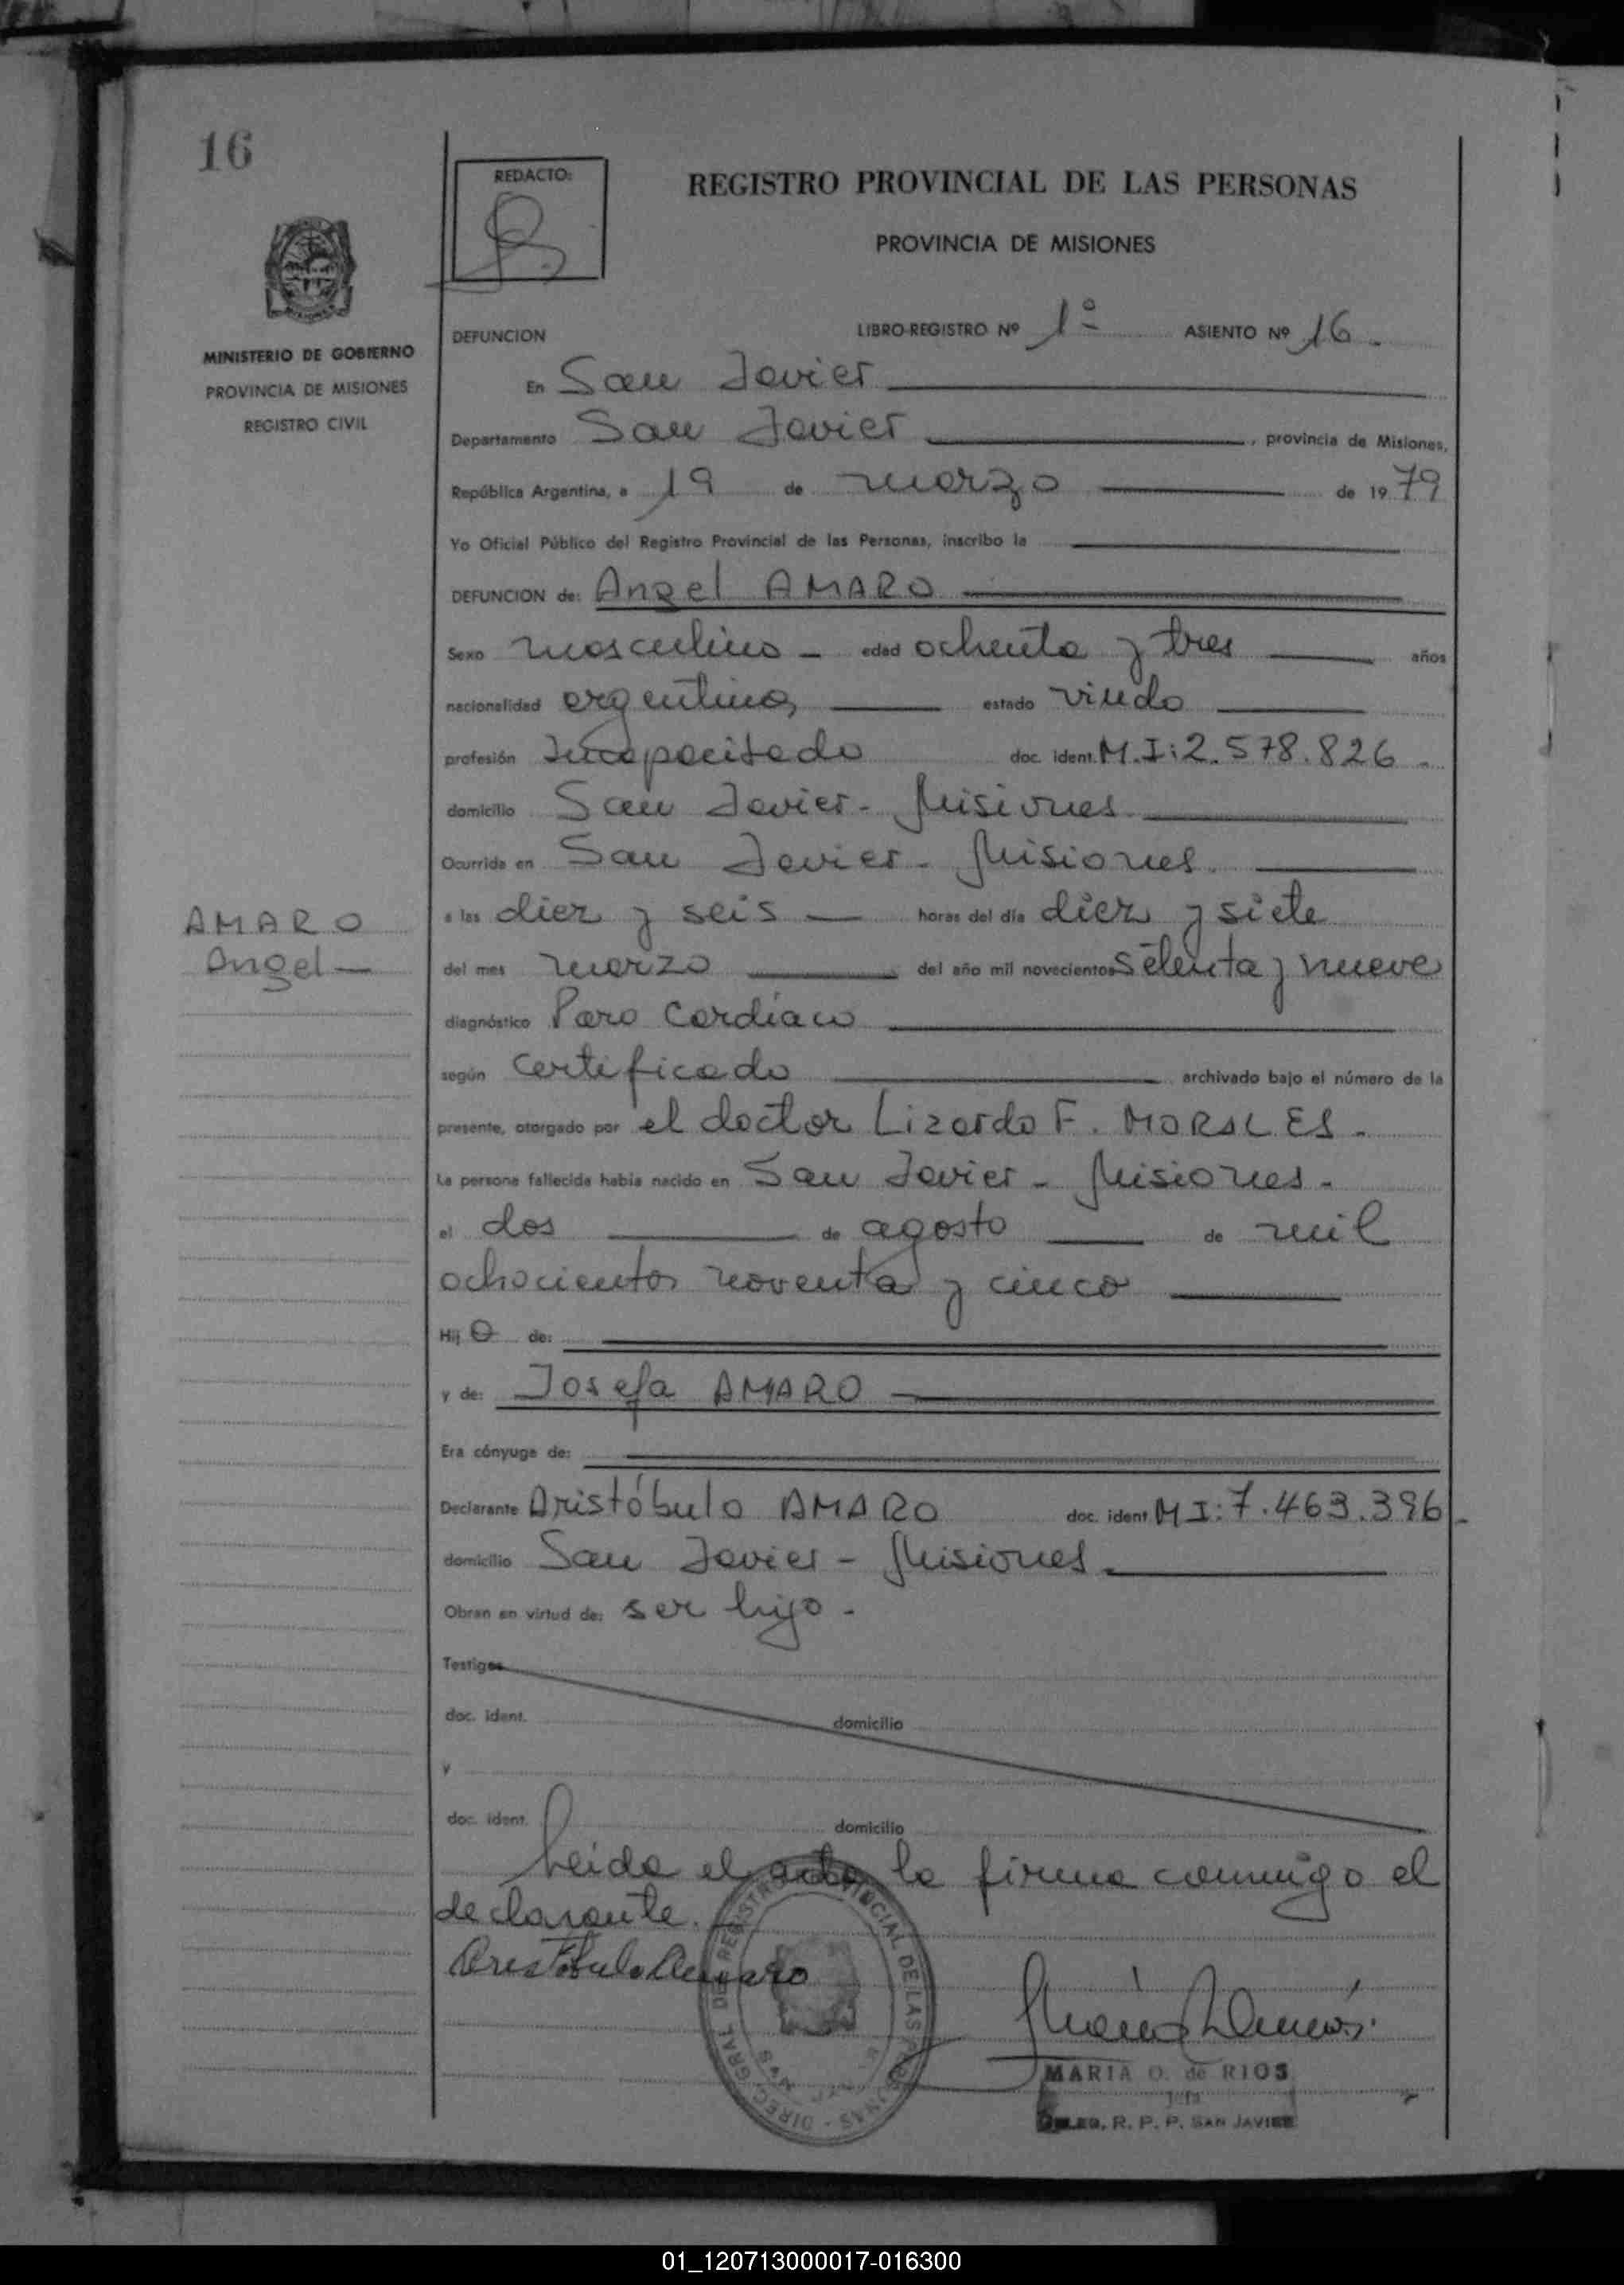 16
REDACTO:
REGISTRO PROVINCIAL DE LAS PERSONAS
PROVINCIA DE MISIONES
MINISTERIO DE GOBIERNO
PROVINCIA DE MISIONES
REGISTRO CIVIL
DEFUNCION LIBRO-REGISTRO Nº 1º ASIENTO Nº 16.
En San Javier
Departamento San Javier, provincia de Misiones,
República Argentina, a 19 de marzo de 1979
Yo Oficial Público del Registro Provincial de las Personas, inscribo la
DEFUNCION de: Angel AMARO
Sexo masculino - edad ochenta y tres años
nacionalidad argentina, estado viudo
profesión Incapacitado doc. ident. M.I: 2.578.826.
domicilio San Javier - Misiones
Ocurrida en San Javier - Misiones.
AMARO
Angel
a las diez y seis horas del día diez y siete
del mes marzo del año mil novecientos setenta y nueve
diagnóstico Paro Cardíaco
según certificado archivado bajo el número de la
presente, otorgado por el doctor Lizardo F. MORALES.
La persona fallecida había nacido en San Javier - Misiones.
el dos de agosto de mil
ochocientos noventa y cinco
Hijo de:
y de: Josefa AMARO
Era cónyuge de:
Declarante Aristóbulo AMARO doc. ident M I: 7.463.396.
domicilio San Javier - Misiones.
Obran en virtud de: ser hijo.
Testigos
doc. ident. domicilio
y
doc. ident. domicilio
Leida el acta la firma conmigo el
declarante.
Aristóbulo Amaro
DIREC. GRAL. DE REGISTRO PROVINCIAL DE LAS PERSONAS
MARIA O. de RIOS
Jefa
DELEG. R. P. P. SAN JAVIER
01_120713000017-016300